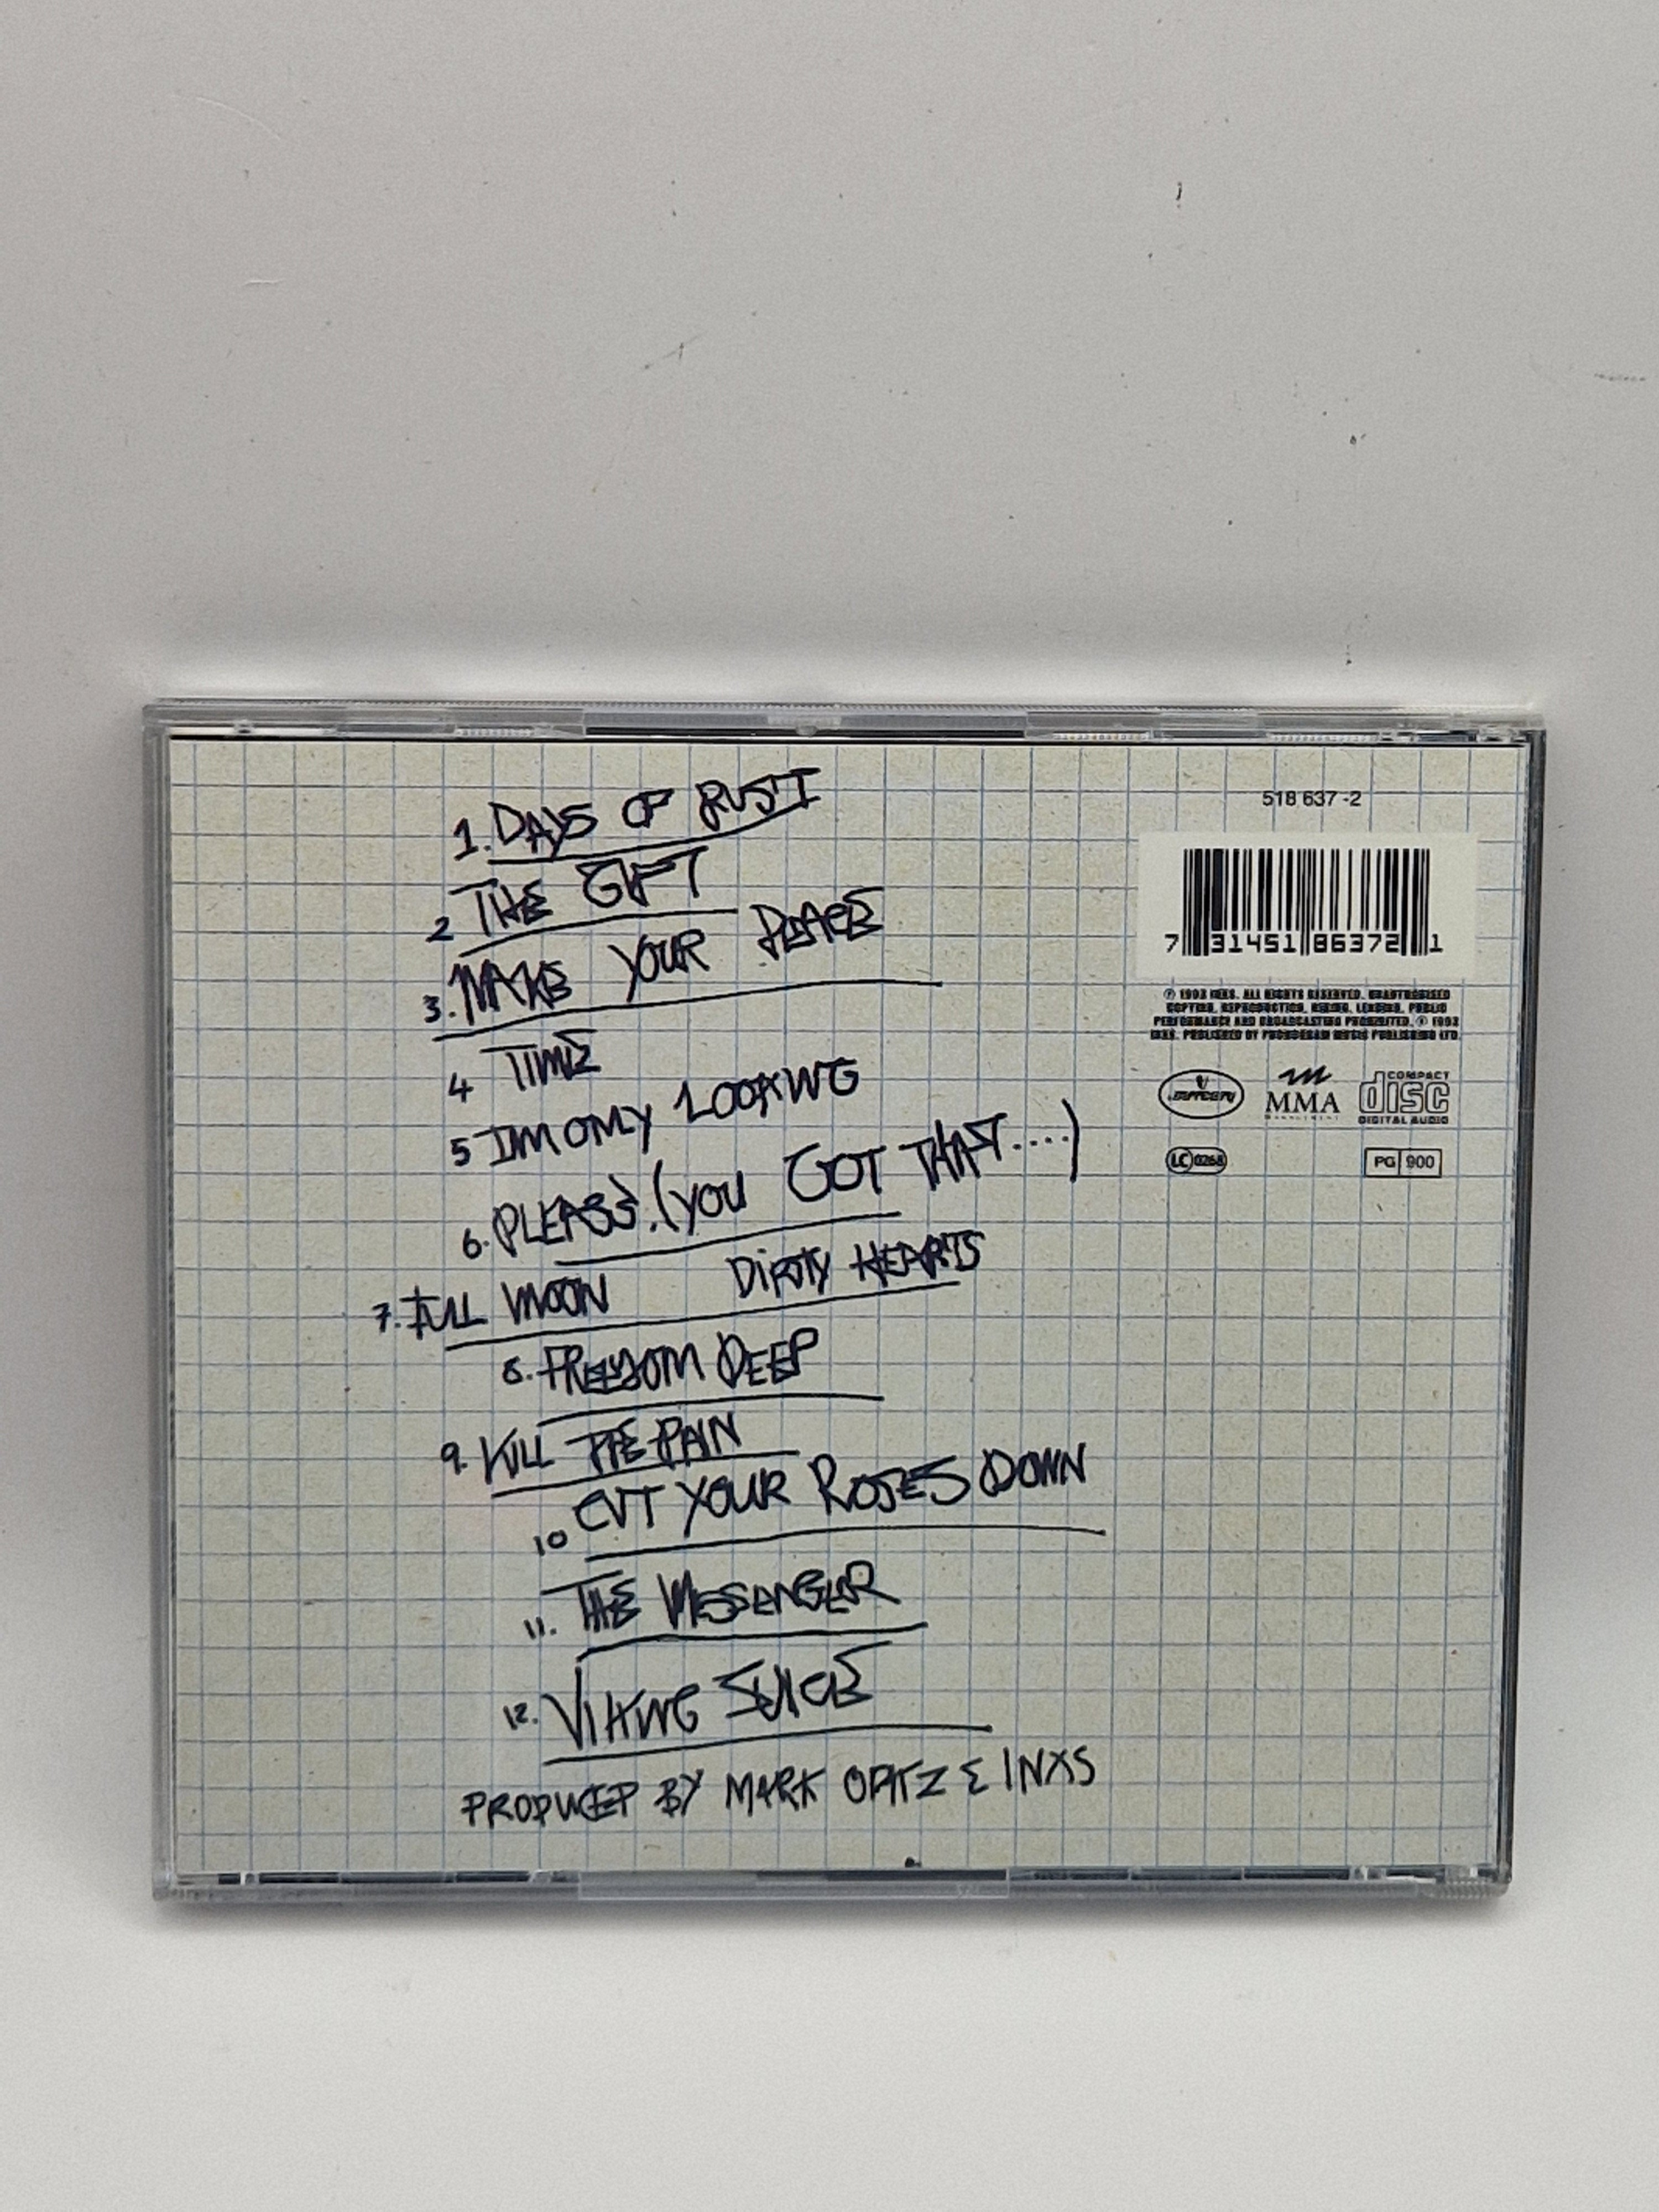 1. DAYS OF RUST
2 THE GIFT
3. MAKE YOUR PEACE
4 TIME
5 IM ONLY LOOKING
6. PLEASE.(YOU GOT THAT....)
7. FULL MOON DIRTY HEARTS
8. FREEDOM DEEP
9. KILL THE PAIN
10 CUT YOUR ROSES DOWN
11. THE MESSENGER
12. VIKING JUICE
PRODUCED BY MARK OPITZ & INXS
518 637 -2
7 31451 86372 1
℗ 1993 INXS. ALL RIGHTS RESERVED. UNAUTHORISED
COPYING, REPRODUCTION, HIRING, LENDING, PUBLIC
PERFORMANCE AND BROADCASTING PROHIBITED. © 1993
INXS. PUBLISHED BY PHONOGRAM MUSIC PUBLISHING LTD.
mercury
MMA
MANAGEMENT
COMPACT
disc
DIGITAL AUDIO
LC 0268
PG 900